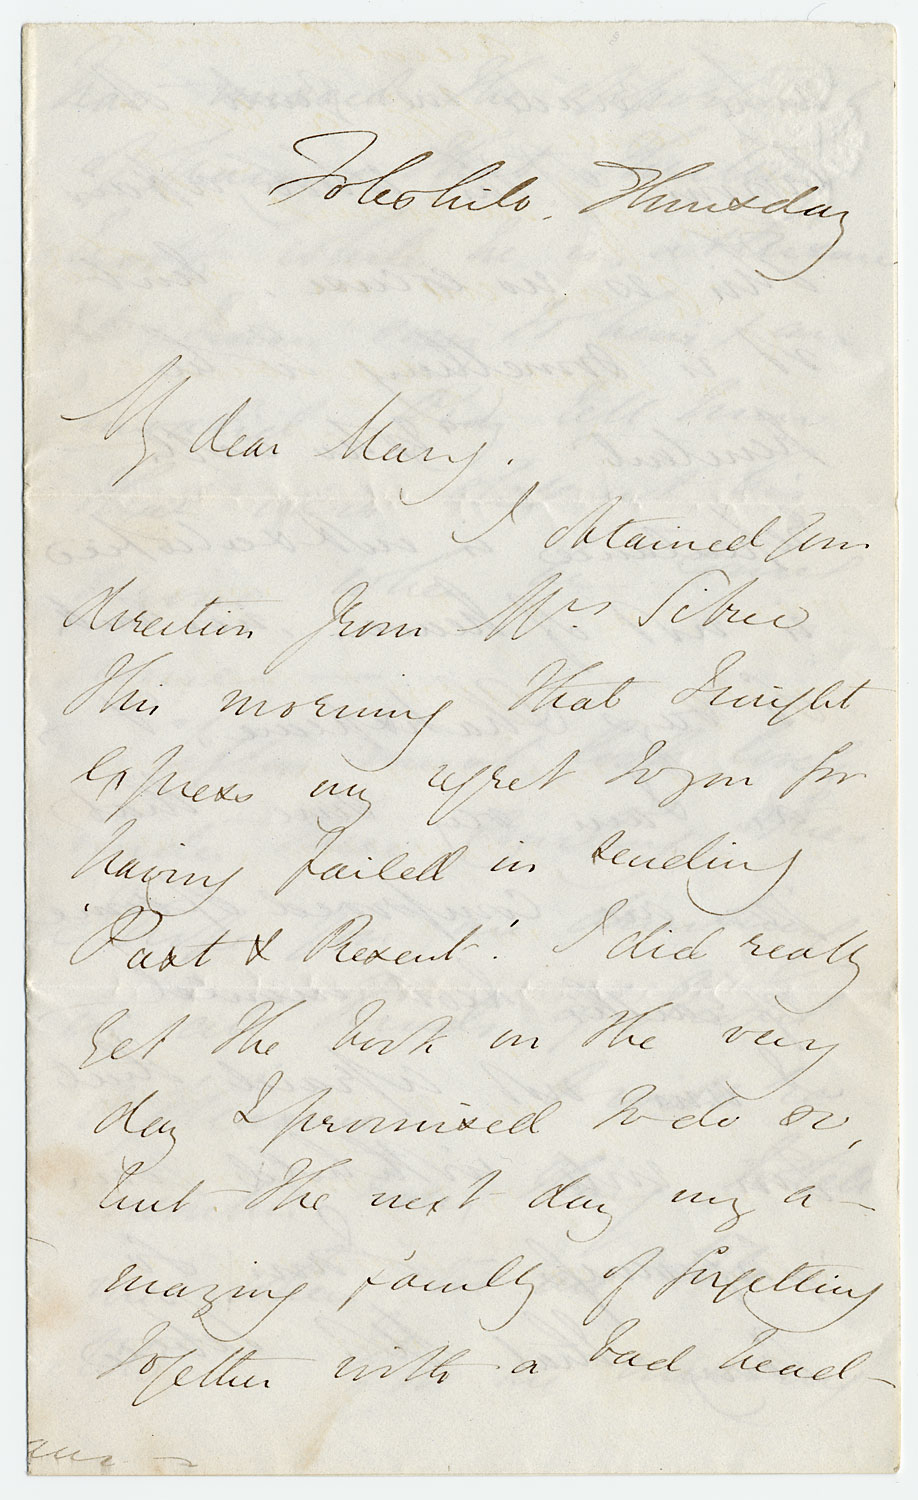 Foleshill. Thursday
My dear Mary.
I obtained your
direction from Mrs. Sibree
this morning that I might
express my regret to you for
having failed in sending
'Past & Present'. I did really
get the book on the very
day I promised to do so,
but the next day my a-
mazing faculty of forgetting
together with a bad head-